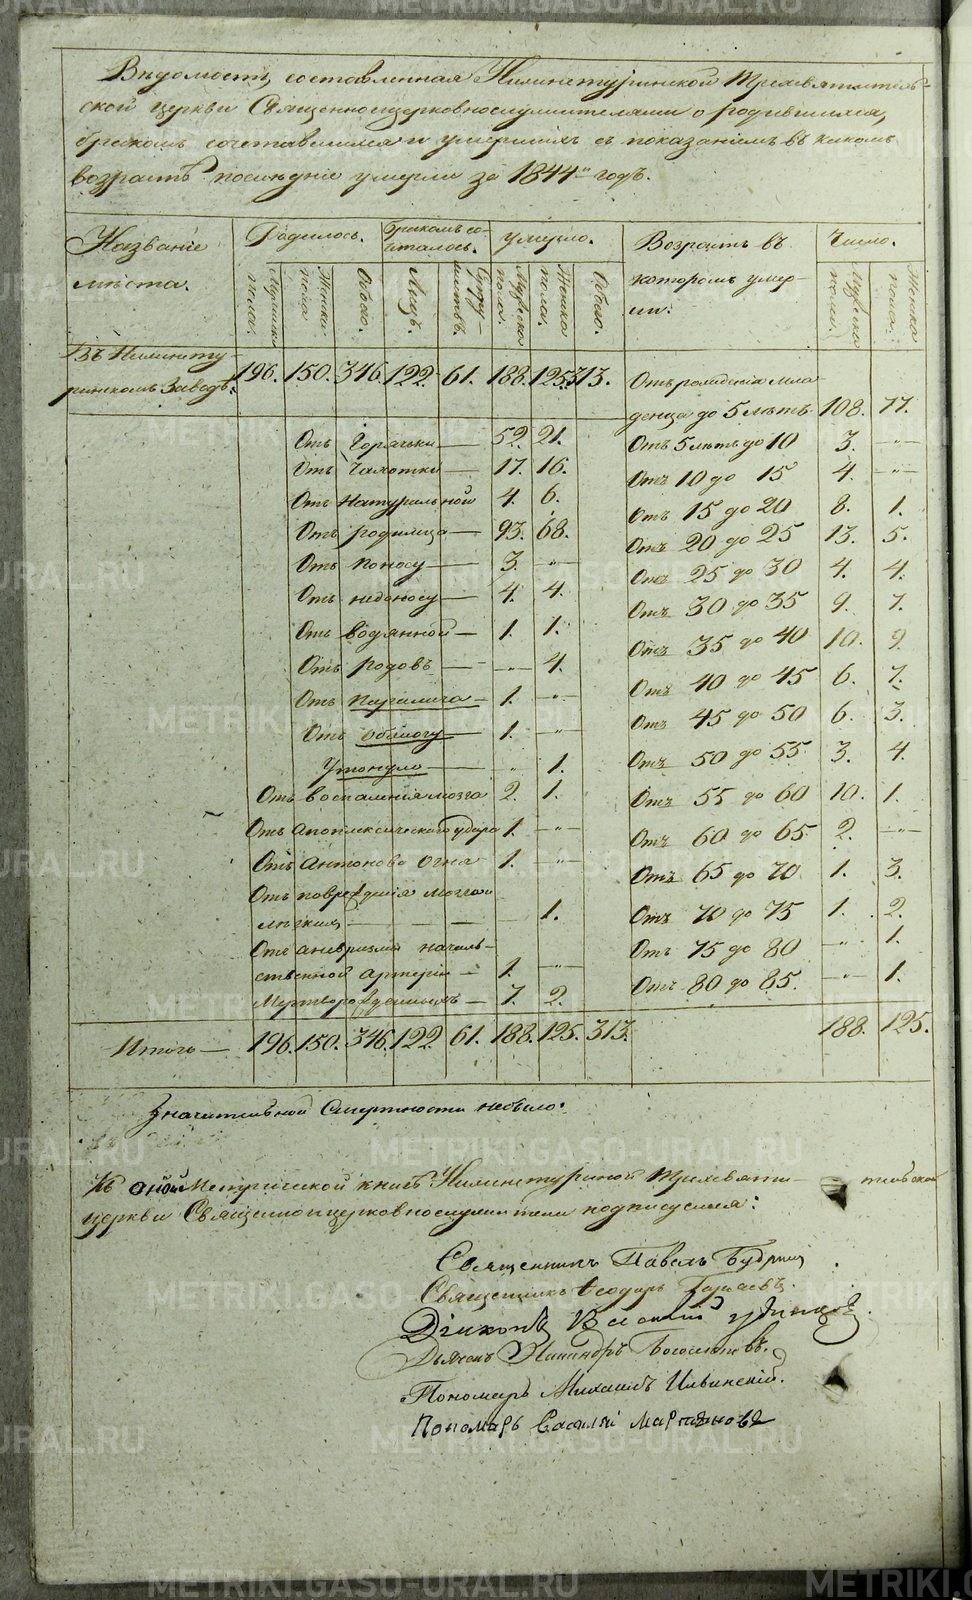 Вѣдомость, составленная Нижнетуринской Трехсвятитель-
ской церкви Священноицерковнослужителями о родившихся,
бракомъ сочетавшихся и умершихъ съ показаніемъ въ какомъ
возрастѣ послѣдніе умерли за 1844й годъ.
Названіе мѣста. Родилось. Бракомъ сочеталось. Умерло. Возрастъ въ которомъ умерли: Число.
Мужска пола. Женска пола Обоего. Лицъ. Супружествъ. Мужска пола. Женска пола. Обоего. Мужска пола. Женска пола.
Въ Нижнетуринскомъ Заводѣ. 196. 150. 346. 122. 61. 188. 125. 313. Отъ рожденія младенца до 5 лѣтъ. 108. 77.
Отъ Горячки — 52. 21. Отъ 5 лѣтъ до 10 3. —"—
Отъ Чахотки — 17. 16. Отъ 10 до 15 4. —"—
Отъ Натуральной 4. 6. Отъ 15 до 20 8. 1.
Отъ родимца — 93. 68. Отъ 20 до 25 13. 5.
Отъ поносу — 3. —"— Отъ 25 до 30 4. 4.
Отъ недоносу — 4. 4. Отъ 30 до 35 9. 7.
Отъ водянной — 1. 1. Отъ 35 до 40 10. 9.
Отъ родовъ — —"— 4. Отъ 40 до 45 6. 7.
Отъ паралича — 1. —"— Отъ 45 до 50 6. 3.
Отъ — 1. —"— Отъ 50 до 55. 3. 4.
Утонуло — " 1. Отъ 55 до 60 10. 1.
Отъ воспаленія мозга 2. 1. Отъ 60 до 65. 2. —"—
Отъ апоплексическаго удара 1. —"— Отъ 65 до 70 1. 3.
Отъ антонова огня 1. —"— Отъ 70 до 75 1. 2.
Отъ поврежденія мозга и
легкихъ — 1. Отъ 75 до 80 —"— 1.
Отъ аневризмы
артеріи — 1. —"— Отъ 80 до 85. —"— 1.
Мертворожденныхъ — 7. 2.
Итого — 196. 150. 346. 122. 61. 188. 125. 313. 188. 125.
Значительной Смертности небыло.
Къ оной Метрической книгѣ Нижнетуринской Трехсвятительской
церкви Священноицерковнослужители подписуемся:
Священникъ Павелъ
Священникъ Ѳеодоръ
Діаконъ
Дьячекъ Никандръ
Пономарь Михаилъ Ильинскій.
Пономарь Василій Мартяновъ
METRIKI.GASO-URAL.RU